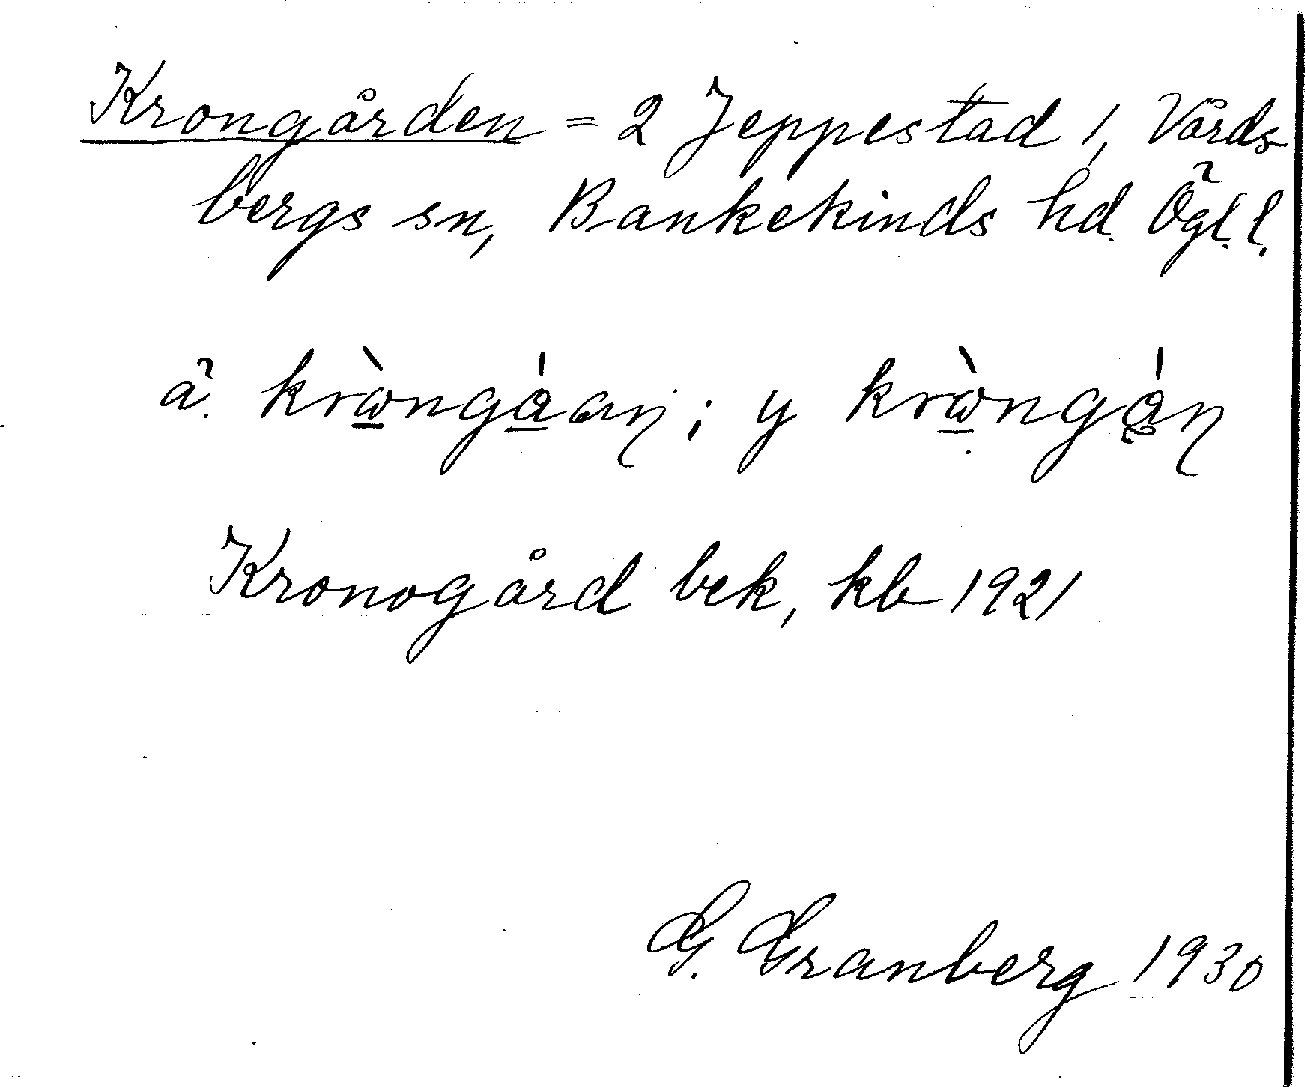 Krongården = 2 Jeppestad 1, Vårds-
bergs sn, Bankekinds hd. Ögl. l.
ä. krὼngáaɳ; y krὼngáɳ
Kronogård bek, kb 1921
G. Granberg 1930